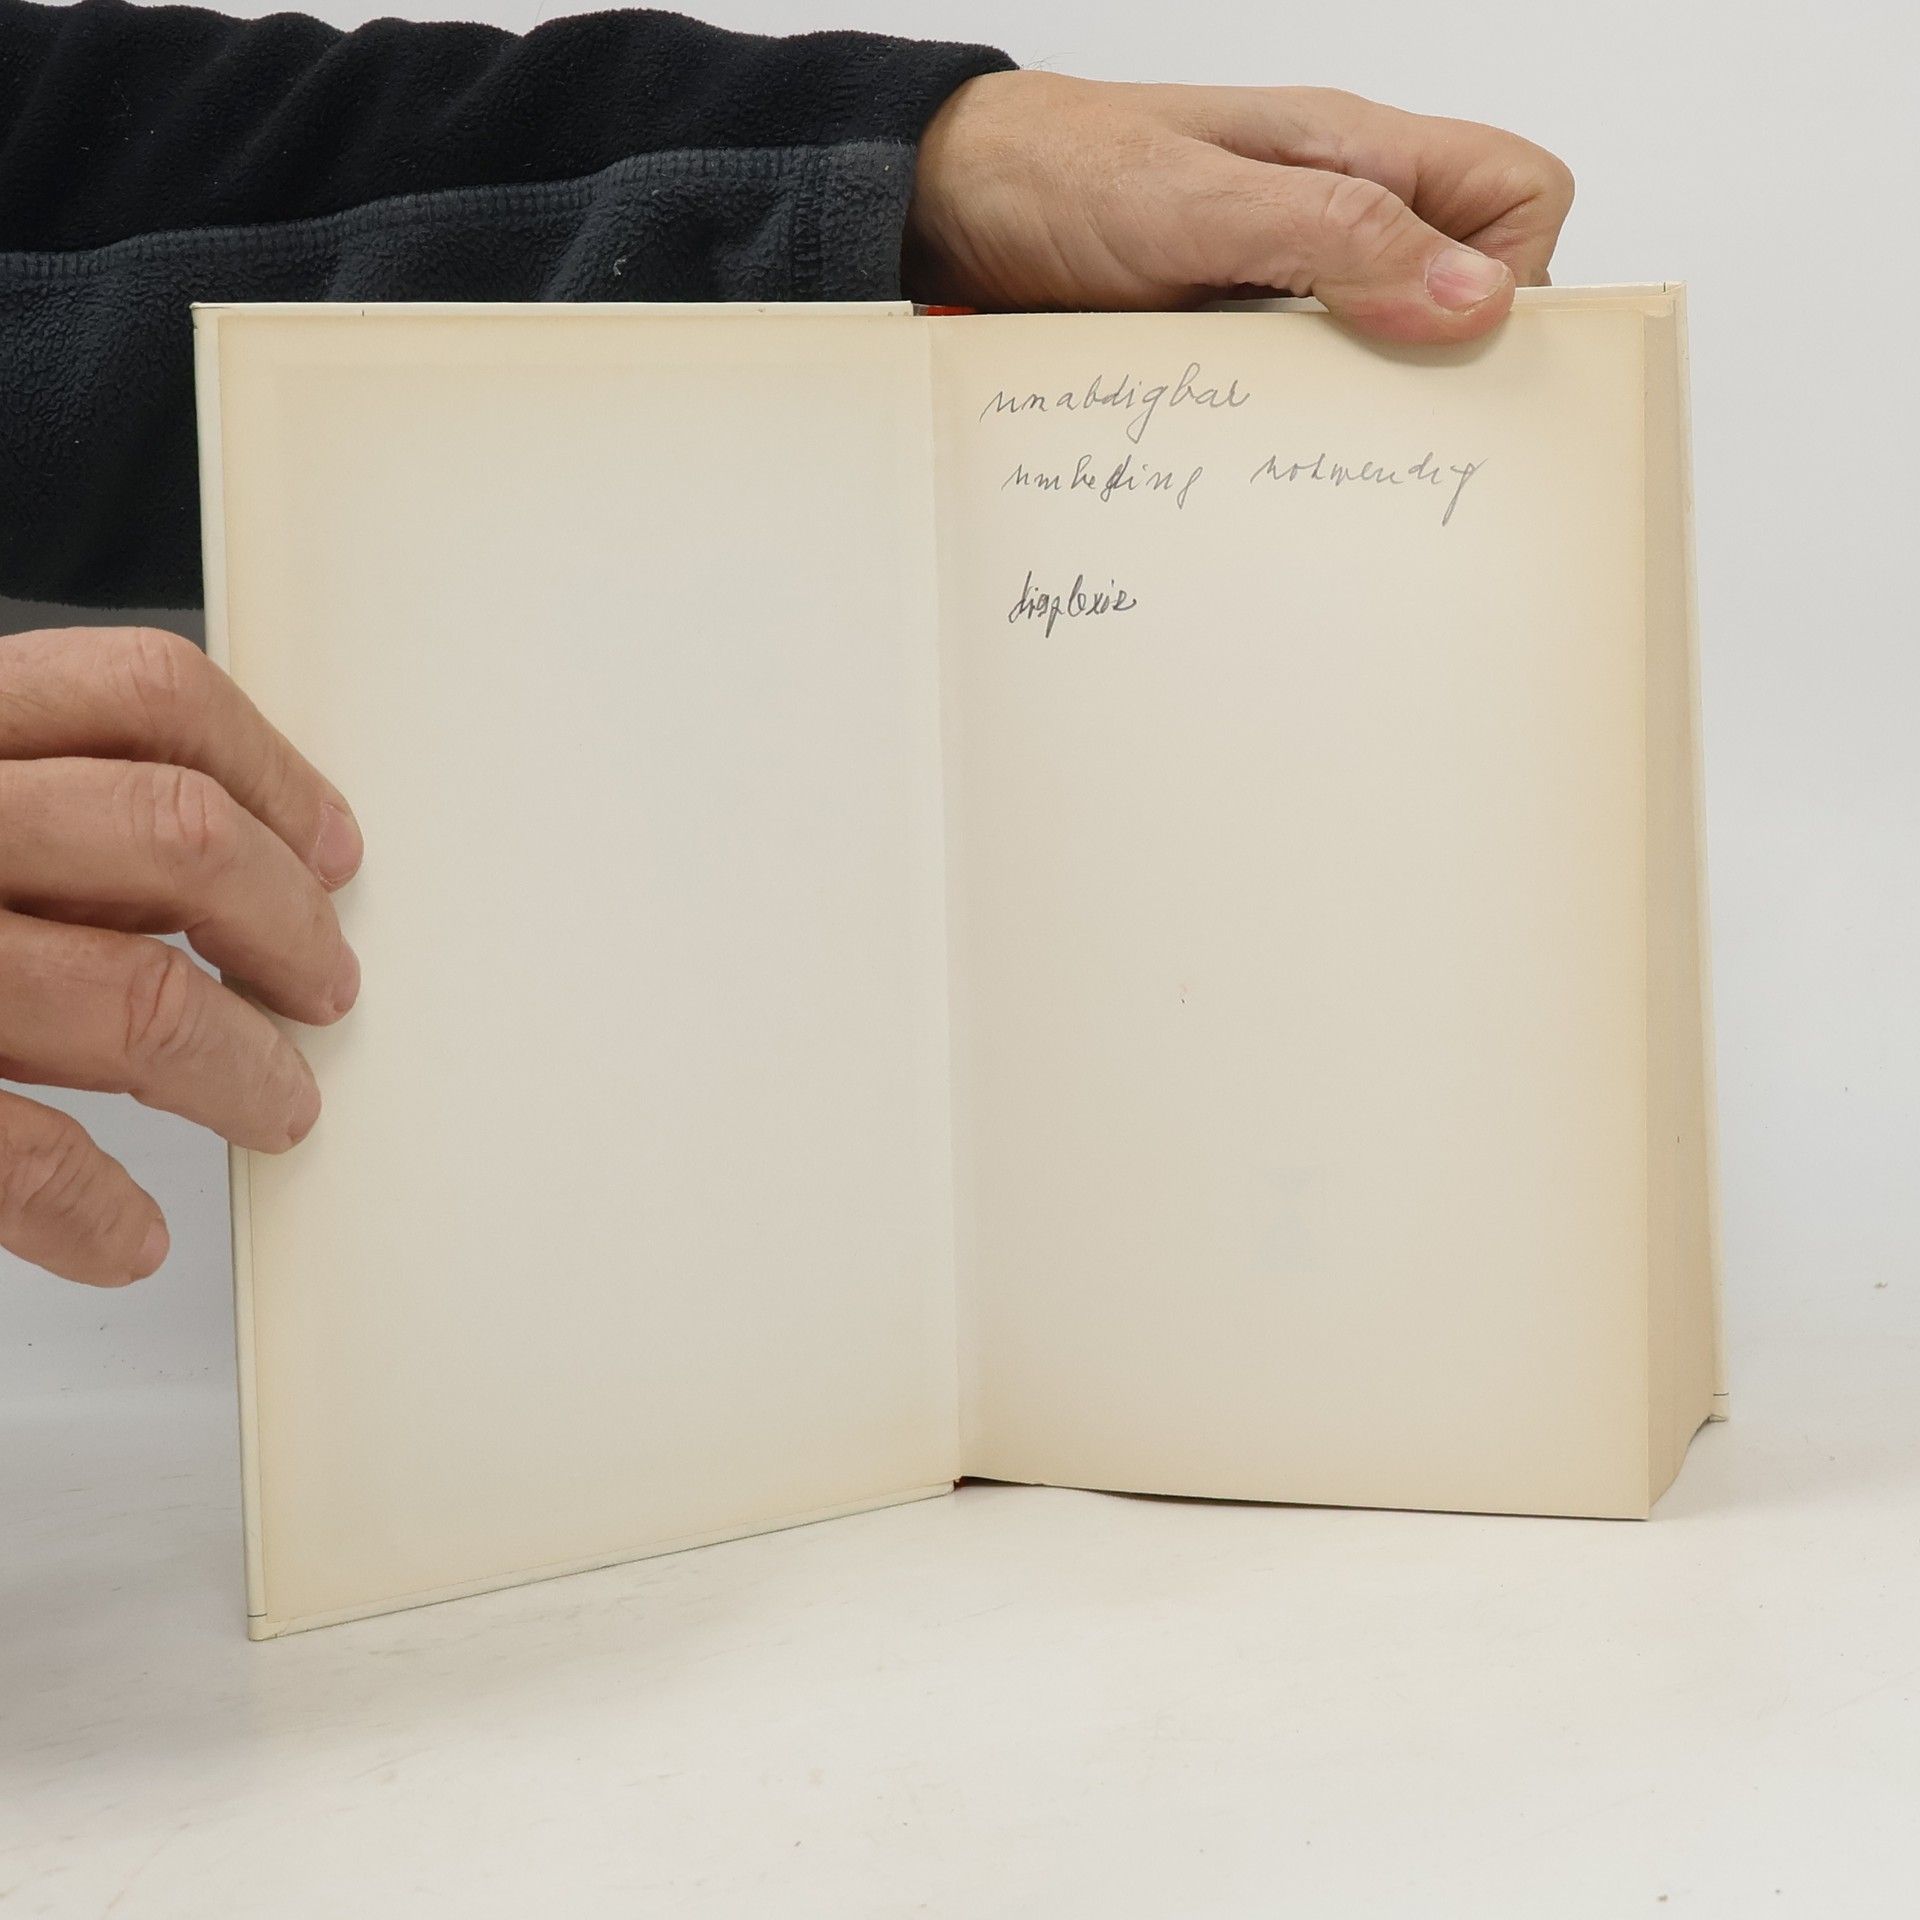 unabdigbar
unbeding notwendig
displexie